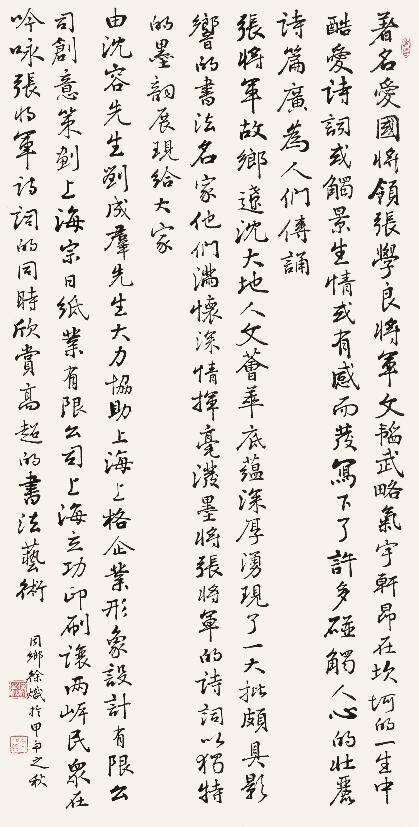 著名愛國將領張學良將軍文韜武略氣宇軒昂在坎坷的一生中
酷愛詩詞或觸景生情或有感而發寫下了許多碰觸人心的壯麗
詩篇廣為人們傳誦
張將軍故鄉遼沈大地人文薈華底蘊深厚湧現了一大批頗具影
響的書法名家他們滿懷深情揮毫潑墨將張將軍的詩詞以獨特
的墨韻展現給大家
由沈容先生劉成羣先生大力協助上海上格企業形象設計有限公
司創意策劃上海宗日紙業有限公司上海立功印刷讓兩岸民衆在
吟咏張將軍詩詞的同時欣賞高超的書法藝術
同鄉徐熾於甲申之秋